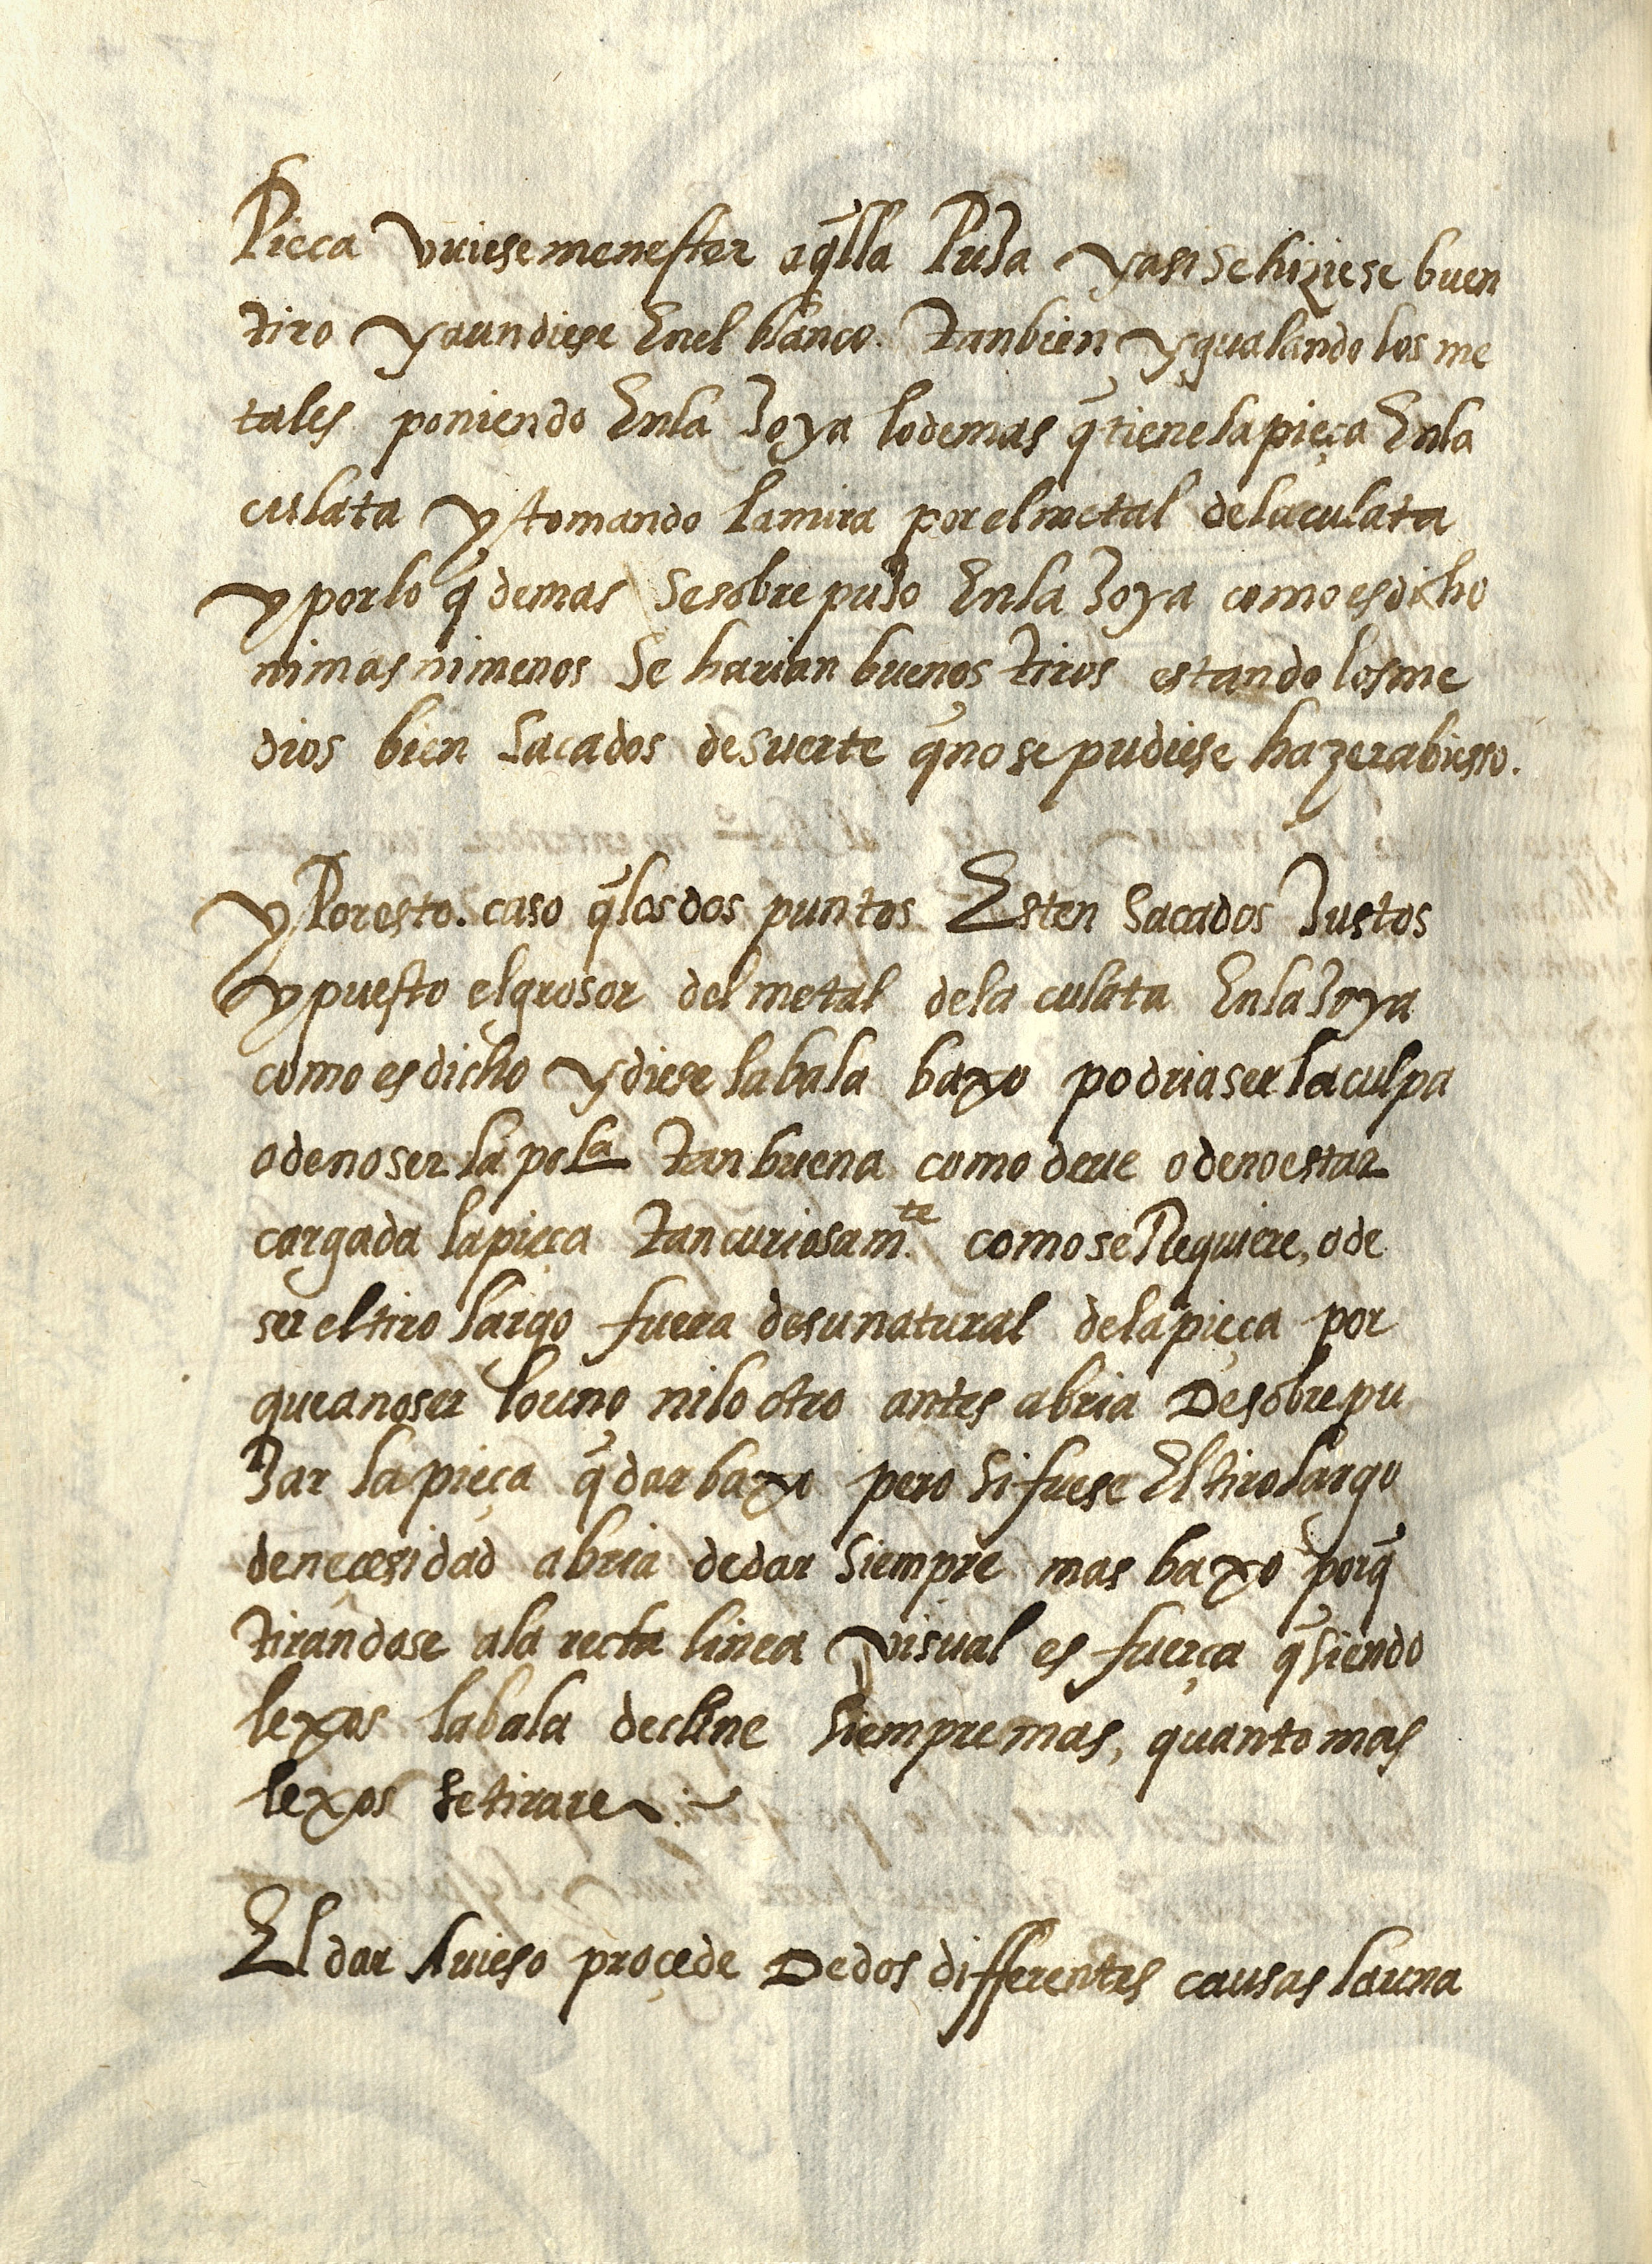 Pieca vuiese menester aq̃lla Puja y asi se hiziese buen
tiro y aun diese En el blanco. tanbien ygualando los me
tales poniendo En la Joya lo demas q̃ tiene la pieça En la
culata y tomando la mira por el metal de la culata
y por lo q̃ demas se sobre pujo En la Joya como es dicho
ni mas ni menos Se harian buenos tiros estando los me
dios bien sacados de suerte q̃ no se pudiese hazer abiesso.
y Por esto. caso q̃ los dos puntos Esten Sacados Justos
y puesto el grosor del metal de la culata En la Joya
como es dicho y diese la bala baxo podria ser la culpa
o de no ser la pol.a tan buena como deue o de no estar
cargada la pieça tan curiosam.te como se Requiere, o de
ser el tiro largo fuera de su natural de la pieça por
que a no ser lo uno ni lo otro antes abria De sobre pu
Jar la pieça q̃ dar baxo pero si fuese El tiro largo
de neçesidad abria de dar siempre mas baxo porq̃
tirandose a la recta linea visual es fuerça q̃ siendo
lexos la bala decline siempre mas, quanto mas
lexos se tirare
El dar Auieso proçede De dos differentes causas la una